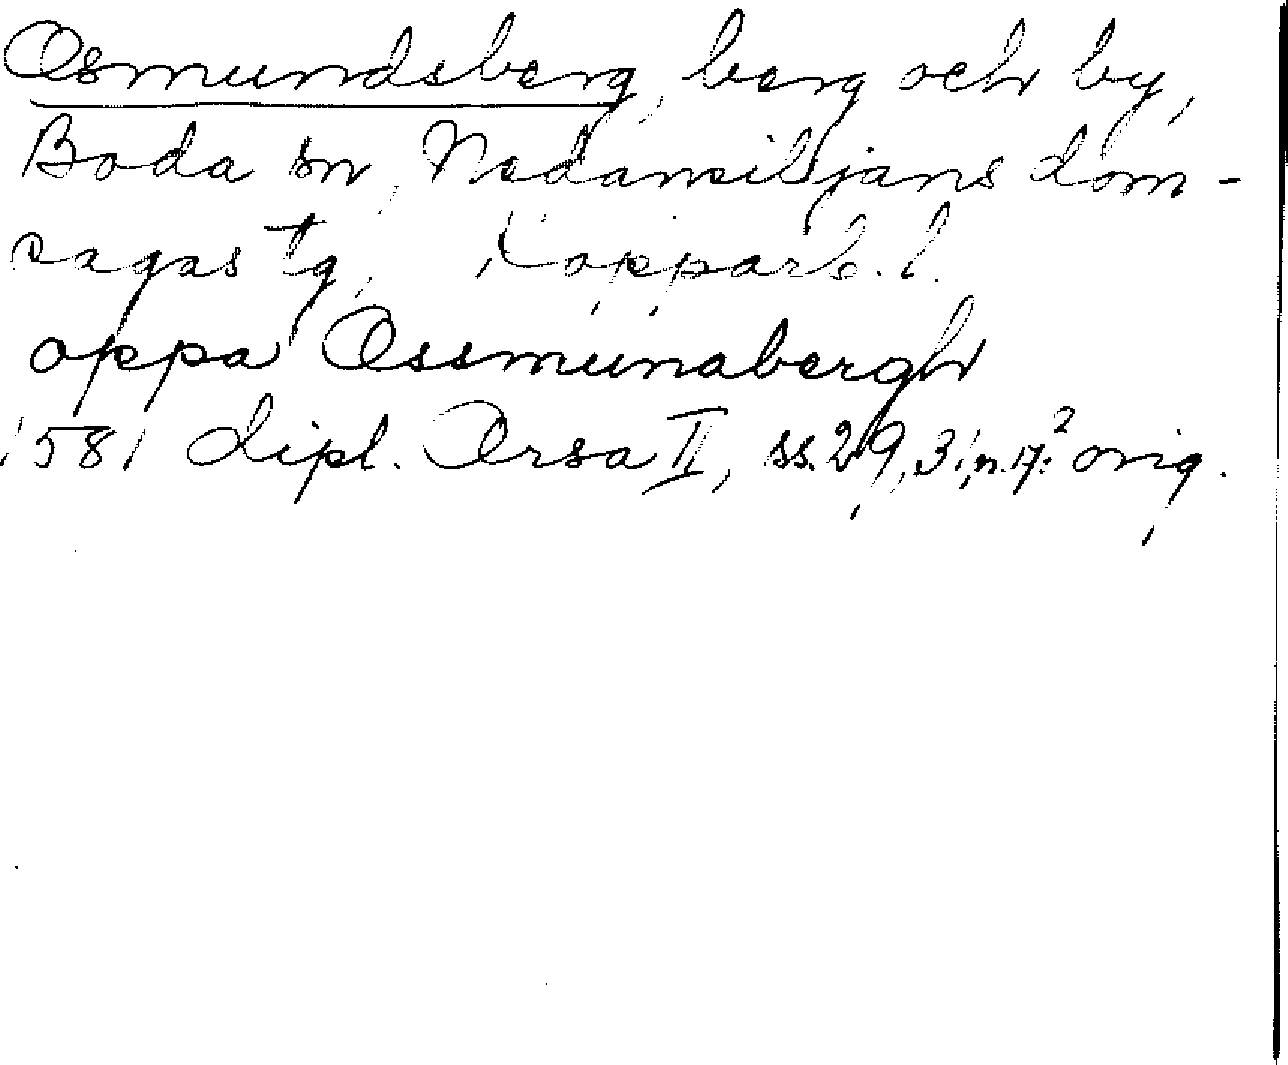 Osmundsberg, berg och by,
Boda sn, Nedansiljans dom-
sagas tg, Kopparb. l.
oppa Ossmunabergh
1581 dipl. Orsa II, ss. 29, 31, n. 17:² orig.